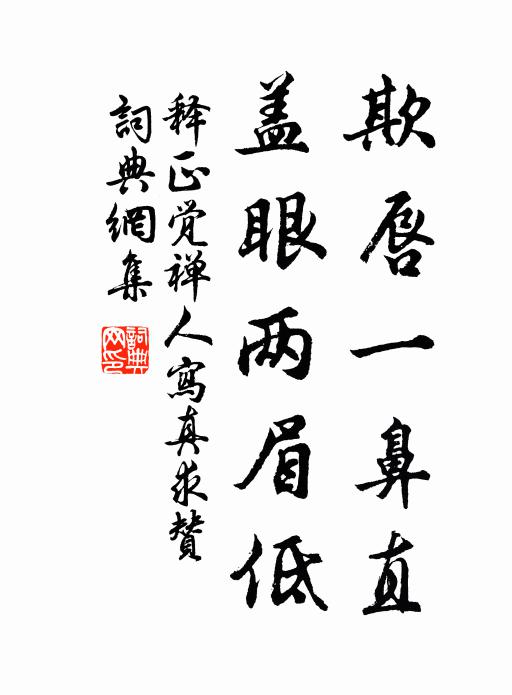 欺唇一鼻直
盖眼两眉低
释正觉禅人寫真求赞
詞典網集
詞典網印